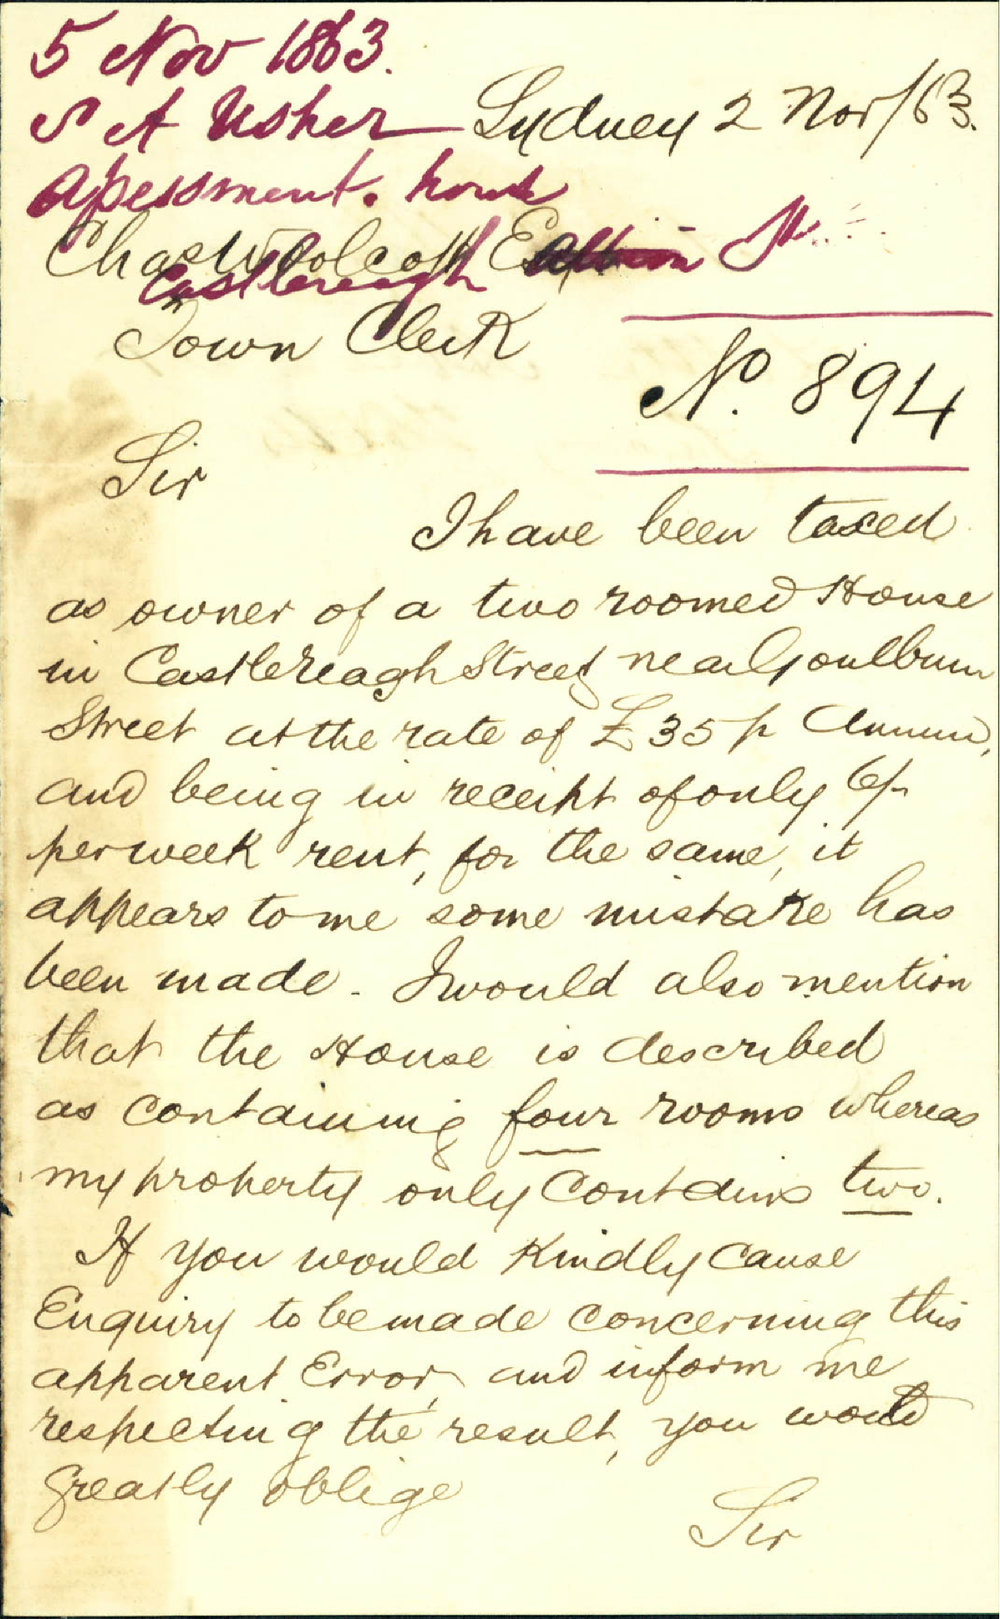 5 Nov 1863.
S A Usher
Sydney 2 Nov/63.
Assessment. house
Chas Woolcott Esq
Albion St
Castlereagh
Town Clerk
No. 894
Sir
I have been taxed
as owner of a two roomed House
in Castlereagh Street near Goulburn
Street at the rate of £35 p Annum,
and being in receipt of only 6/-
per week rent, for the same, it
appears to me some mistake has
been made. I would also mention
that the House is described
as containing four rooms whereas
my property only contains two.
If you would Kindly cause
Enquiry to be made concerning this
apparent Error, and inform me
respecting the result, you would
greatly oblige
Sir